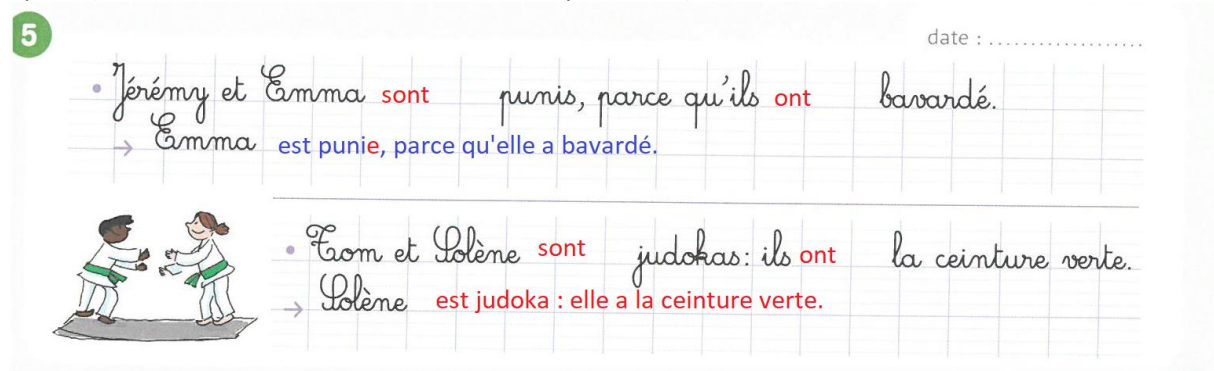 5
date : ....................
• Jérémy et Emma sont punis, parce qu'ils ont bavardé.
→ Emma est punie, parce qu'elle a bavardé.
• Tom et Solène sont judokas : ils ont la ceinture verte.
→ Solène est judoka : elle a la ceinture verte.